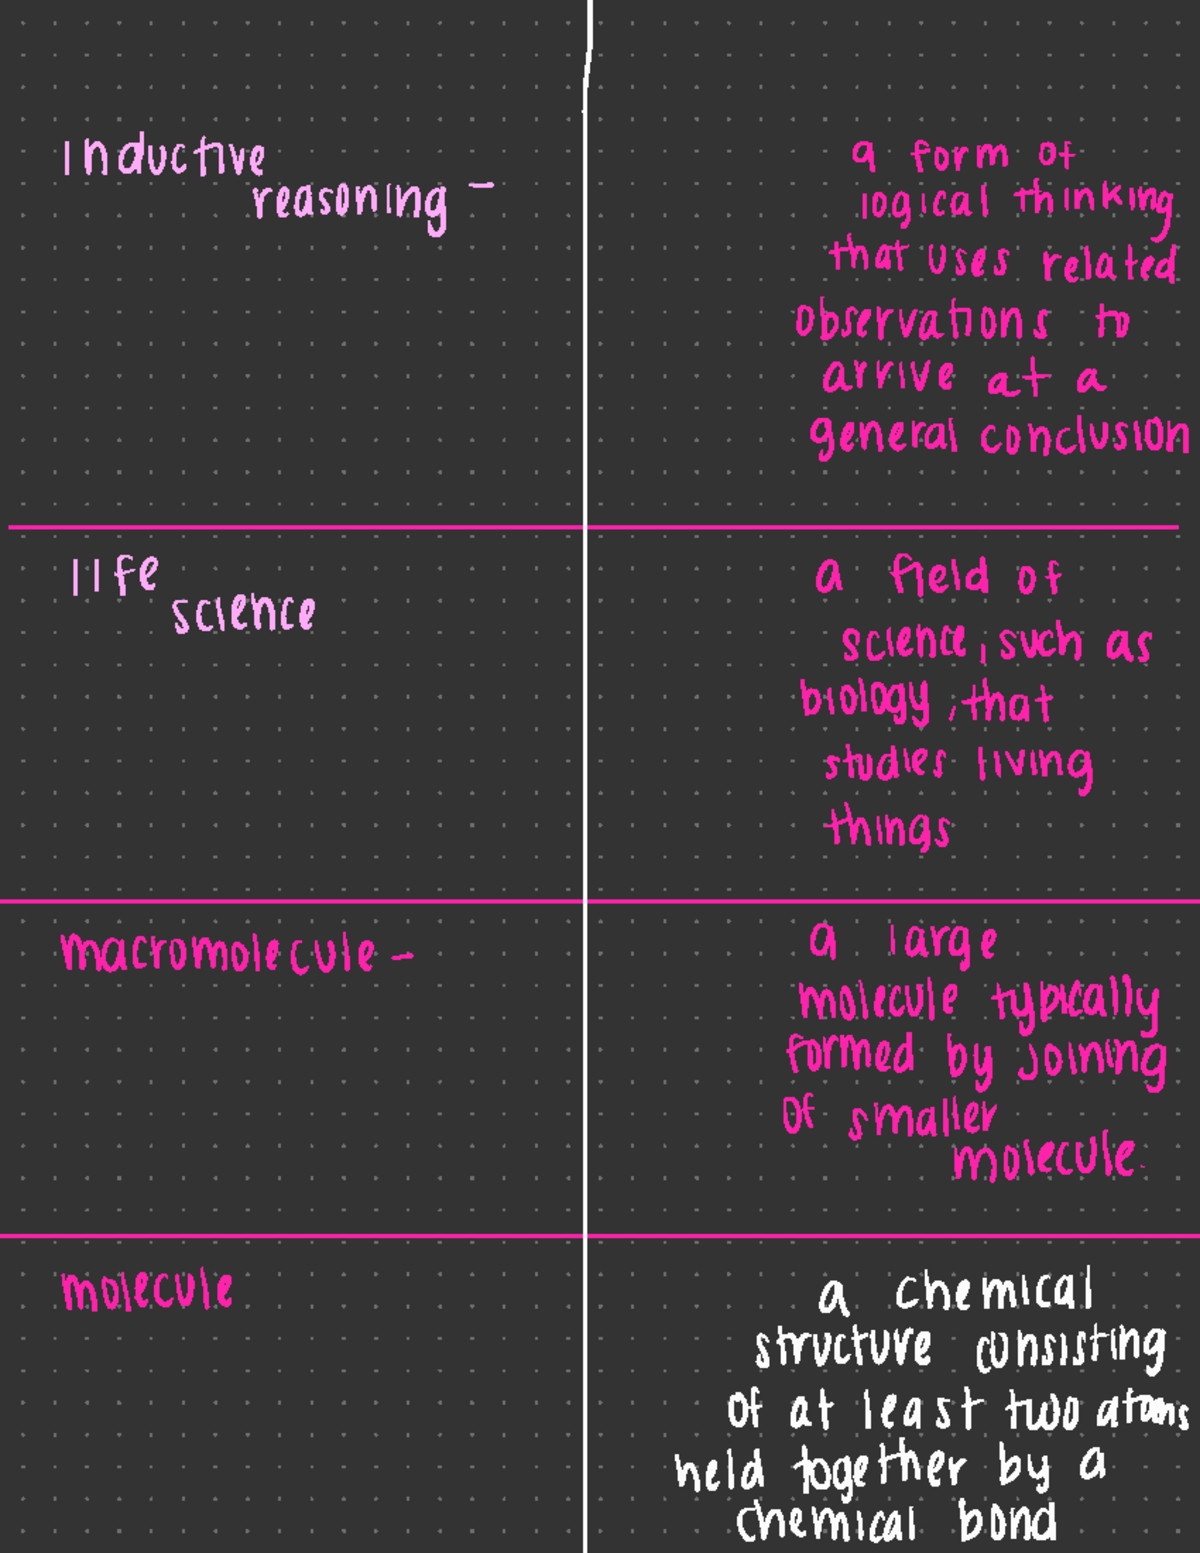 inductive
reasoning -
a form of
logical thinking
that uses related
observations to
arrive at a
general conclusion
life
science
a field of
science, such as
biology, that
studies living
things
macromolecule -
a large
molecule typically
formed by joining
of smaller
molecule.
molecule
a chemical
structure consisting
of at least two atoms
held together by a
chemical bond